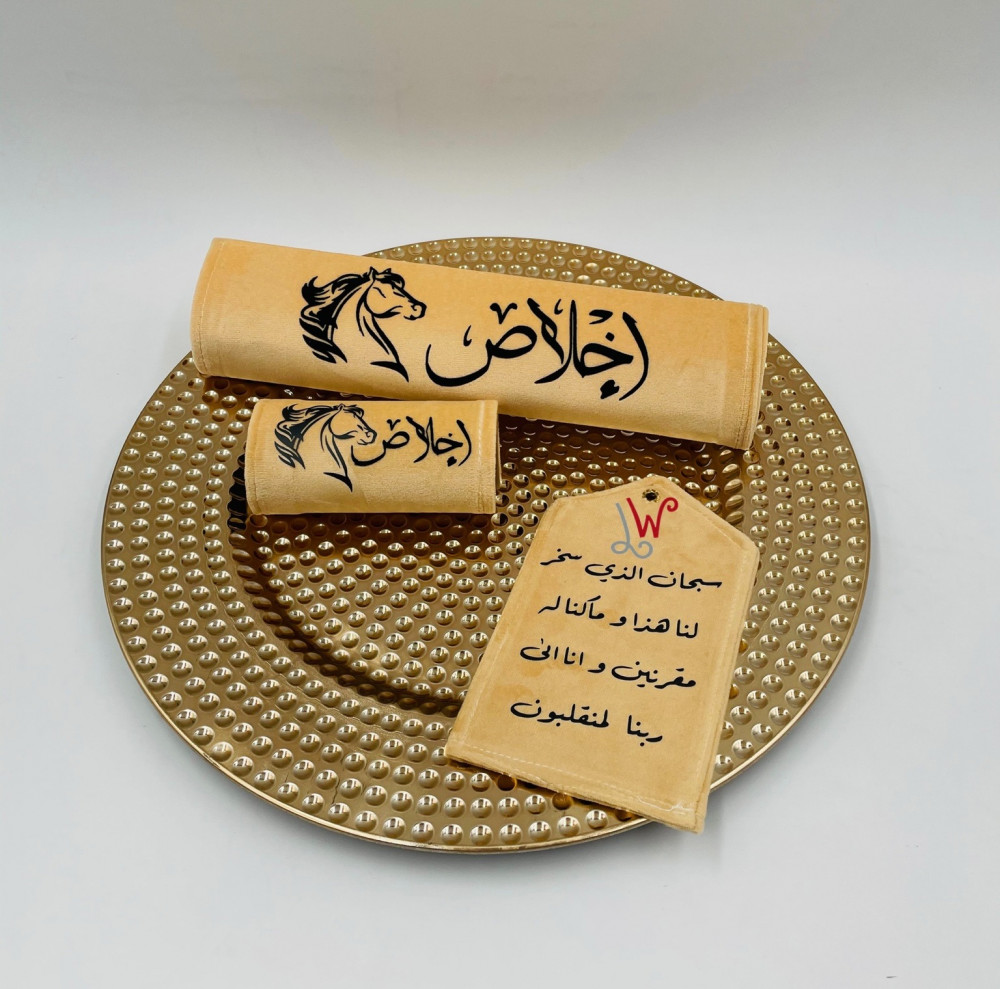 إخلاص
إخلاص
LW
سبحان الذي سخر
لنا هذا و ما كنا له
مقرنين و انا الى
ربنا لمنقلبون